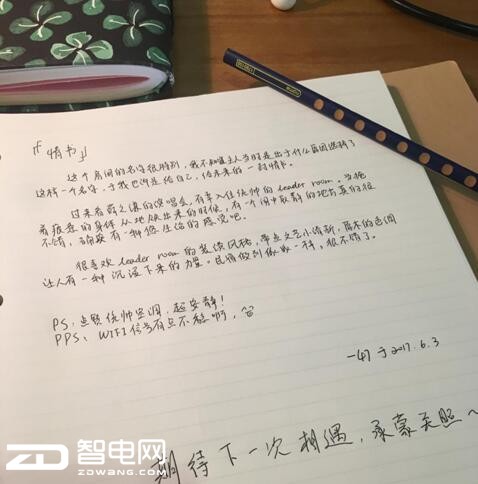 『情书』
这个房间的名字很特别，我不知道主人当时是出于什么原因选择了
这样一个名字，于我也许是给自己，给未来的一封情书。
过来看薛之谦的演唱会，有幸入住优帅的leader room。当拖
着疲惫的身体从地铁出来的时候，有一个闹中取静的地方真的很
不错，确实有一种
很喜欢leader room的装修风格，带点文艺小清新，原木的色调
让人有一种沉浸下来的力量。民宿做到像家一样，很不错了。
PS：点赞优帅空调，超安静！
PPS、WIFI信号有点不稳啊，
一切 于2017.6.3
期待下一次相遇，承蒙关照～
ZD 智电网
ZDWANG.COM